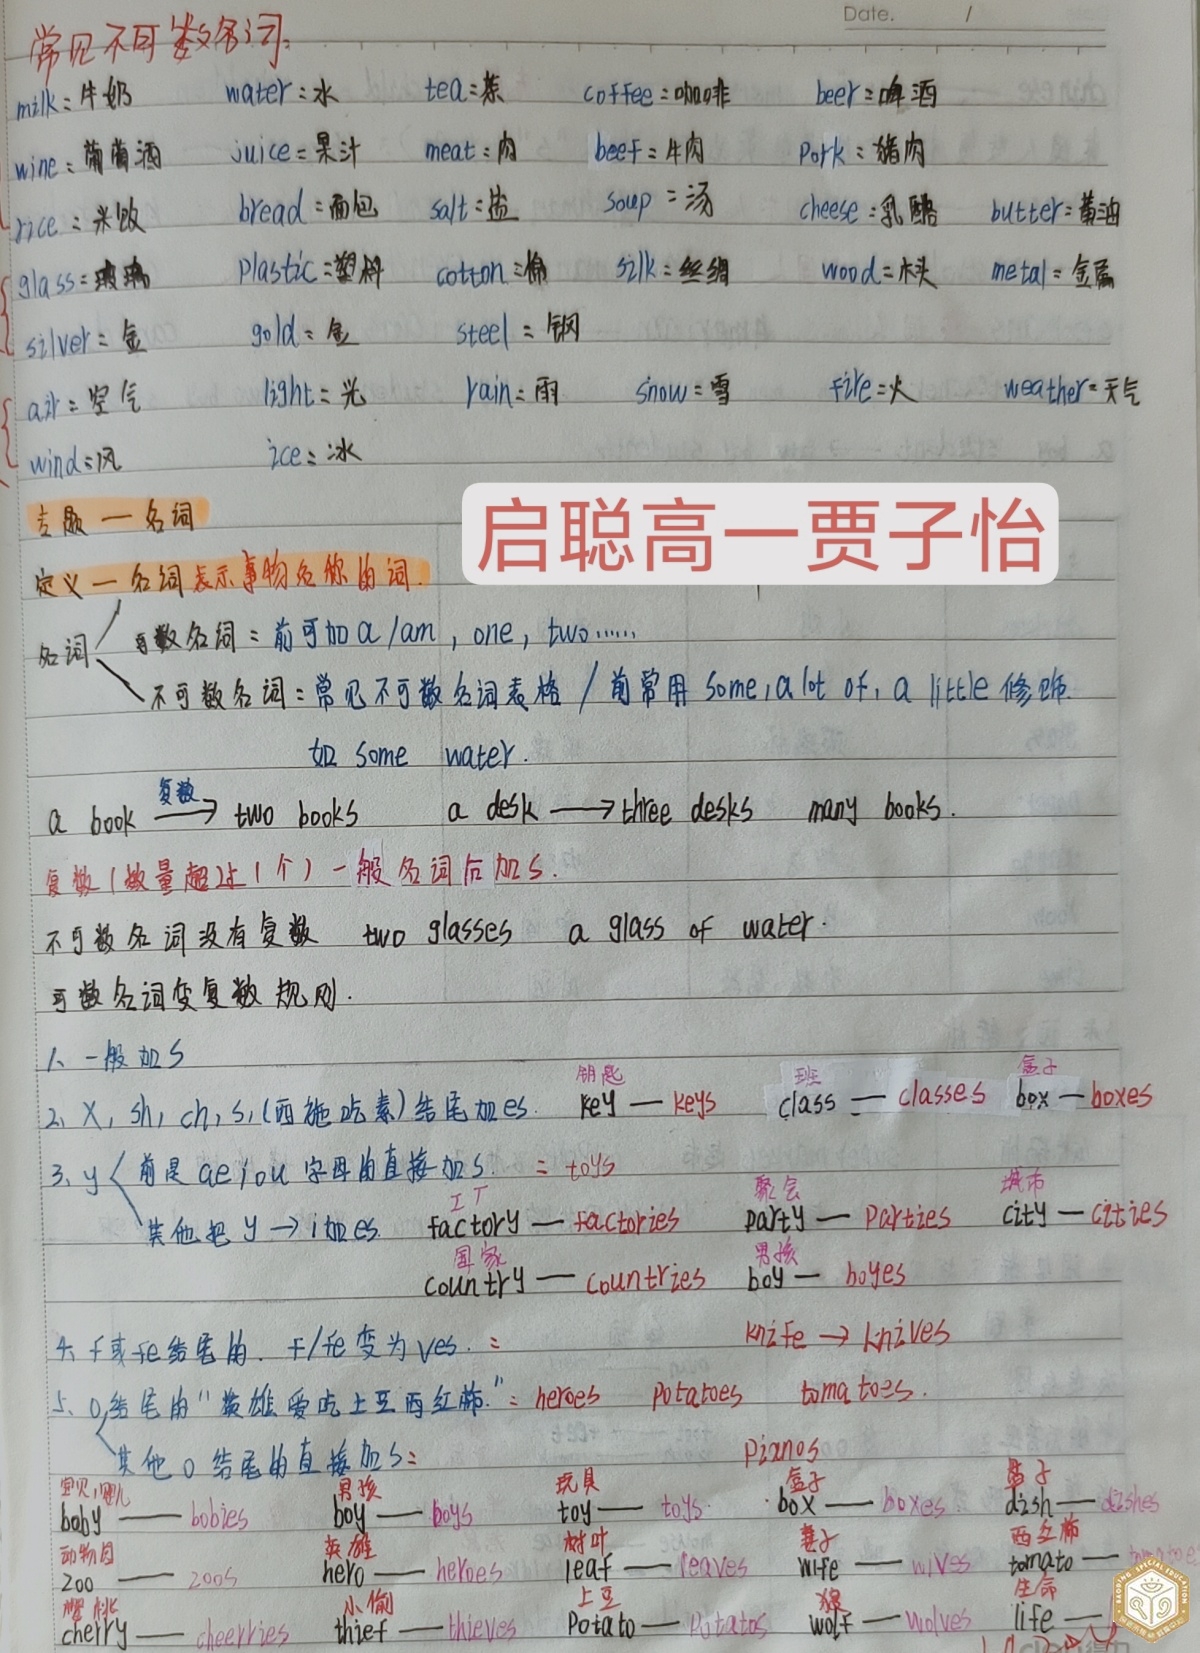 Date. /
常见不可数名词:
milk=牛奶 water=水 tea=茶 coffee=咖啡 beer=啤酒
wine=葡萄酒 juice=果汁 meat=肉 beef=牛肉 pork=猪肉
rice=米饭 bread=面包 salt=盐 soup=汤 cheese=乳酪 butter=黄油
glass=玻璃 plastic=塑料 cotton=棉 silk=丝绸 wood=木头 metal=金属
silver=金 gold=金 steel=钢
air=空气 light=光 rain=雨 snow=雪 fire=火 weather=天气
wind=风 ice=冰
专题一名词
启聪高一贾子怡
定义一名词表示事物名称的词.
名词 可数名词=前可加a/am, one, two……
不可数名词=常见不可数名词表格/前常用some, a lot of, a little修饰.
如some water.
复数
a book → two books a desk → three desks many books.
复数(数量超过1个)一般名词后加s.
不可数名词没有复数 two glasses a glass of water.
可数名词变复数规则.
1、一般加s
钥匙 班 盒子
2、x, sh, ch, s, (西施吃素)结尾加es. key — keys class — classes box — boxes
3、y 前是aeiou字母的直接加s. = toys
工厂 聚会 城市
其他把y→i加es. factory — factories party — parties city — cities
国家 男孩
country — countries boy — boyes
4、f或fe结尾的. f/fe变为ves.= knife → knives
5、o结尾的"英雄爱吃土豆西红柿."= heroes potatoes tomatoes.
其他o结尾的直接加s= pianos
宝贝,婴儿 男孩 玩具 盒子 盘子
baby — babies boy — boys toy — toys box — boxes dish — dishes
动物园 英雄 树叶 妻子 西红柿
zoo — zoos hero — heroes leaf — leaves wife — wives tomato — tomatoes
樱桃 小偷 土豆 狼 生命
cherry — cheerries thief — thieves potato — potatos wolf — wolves life —